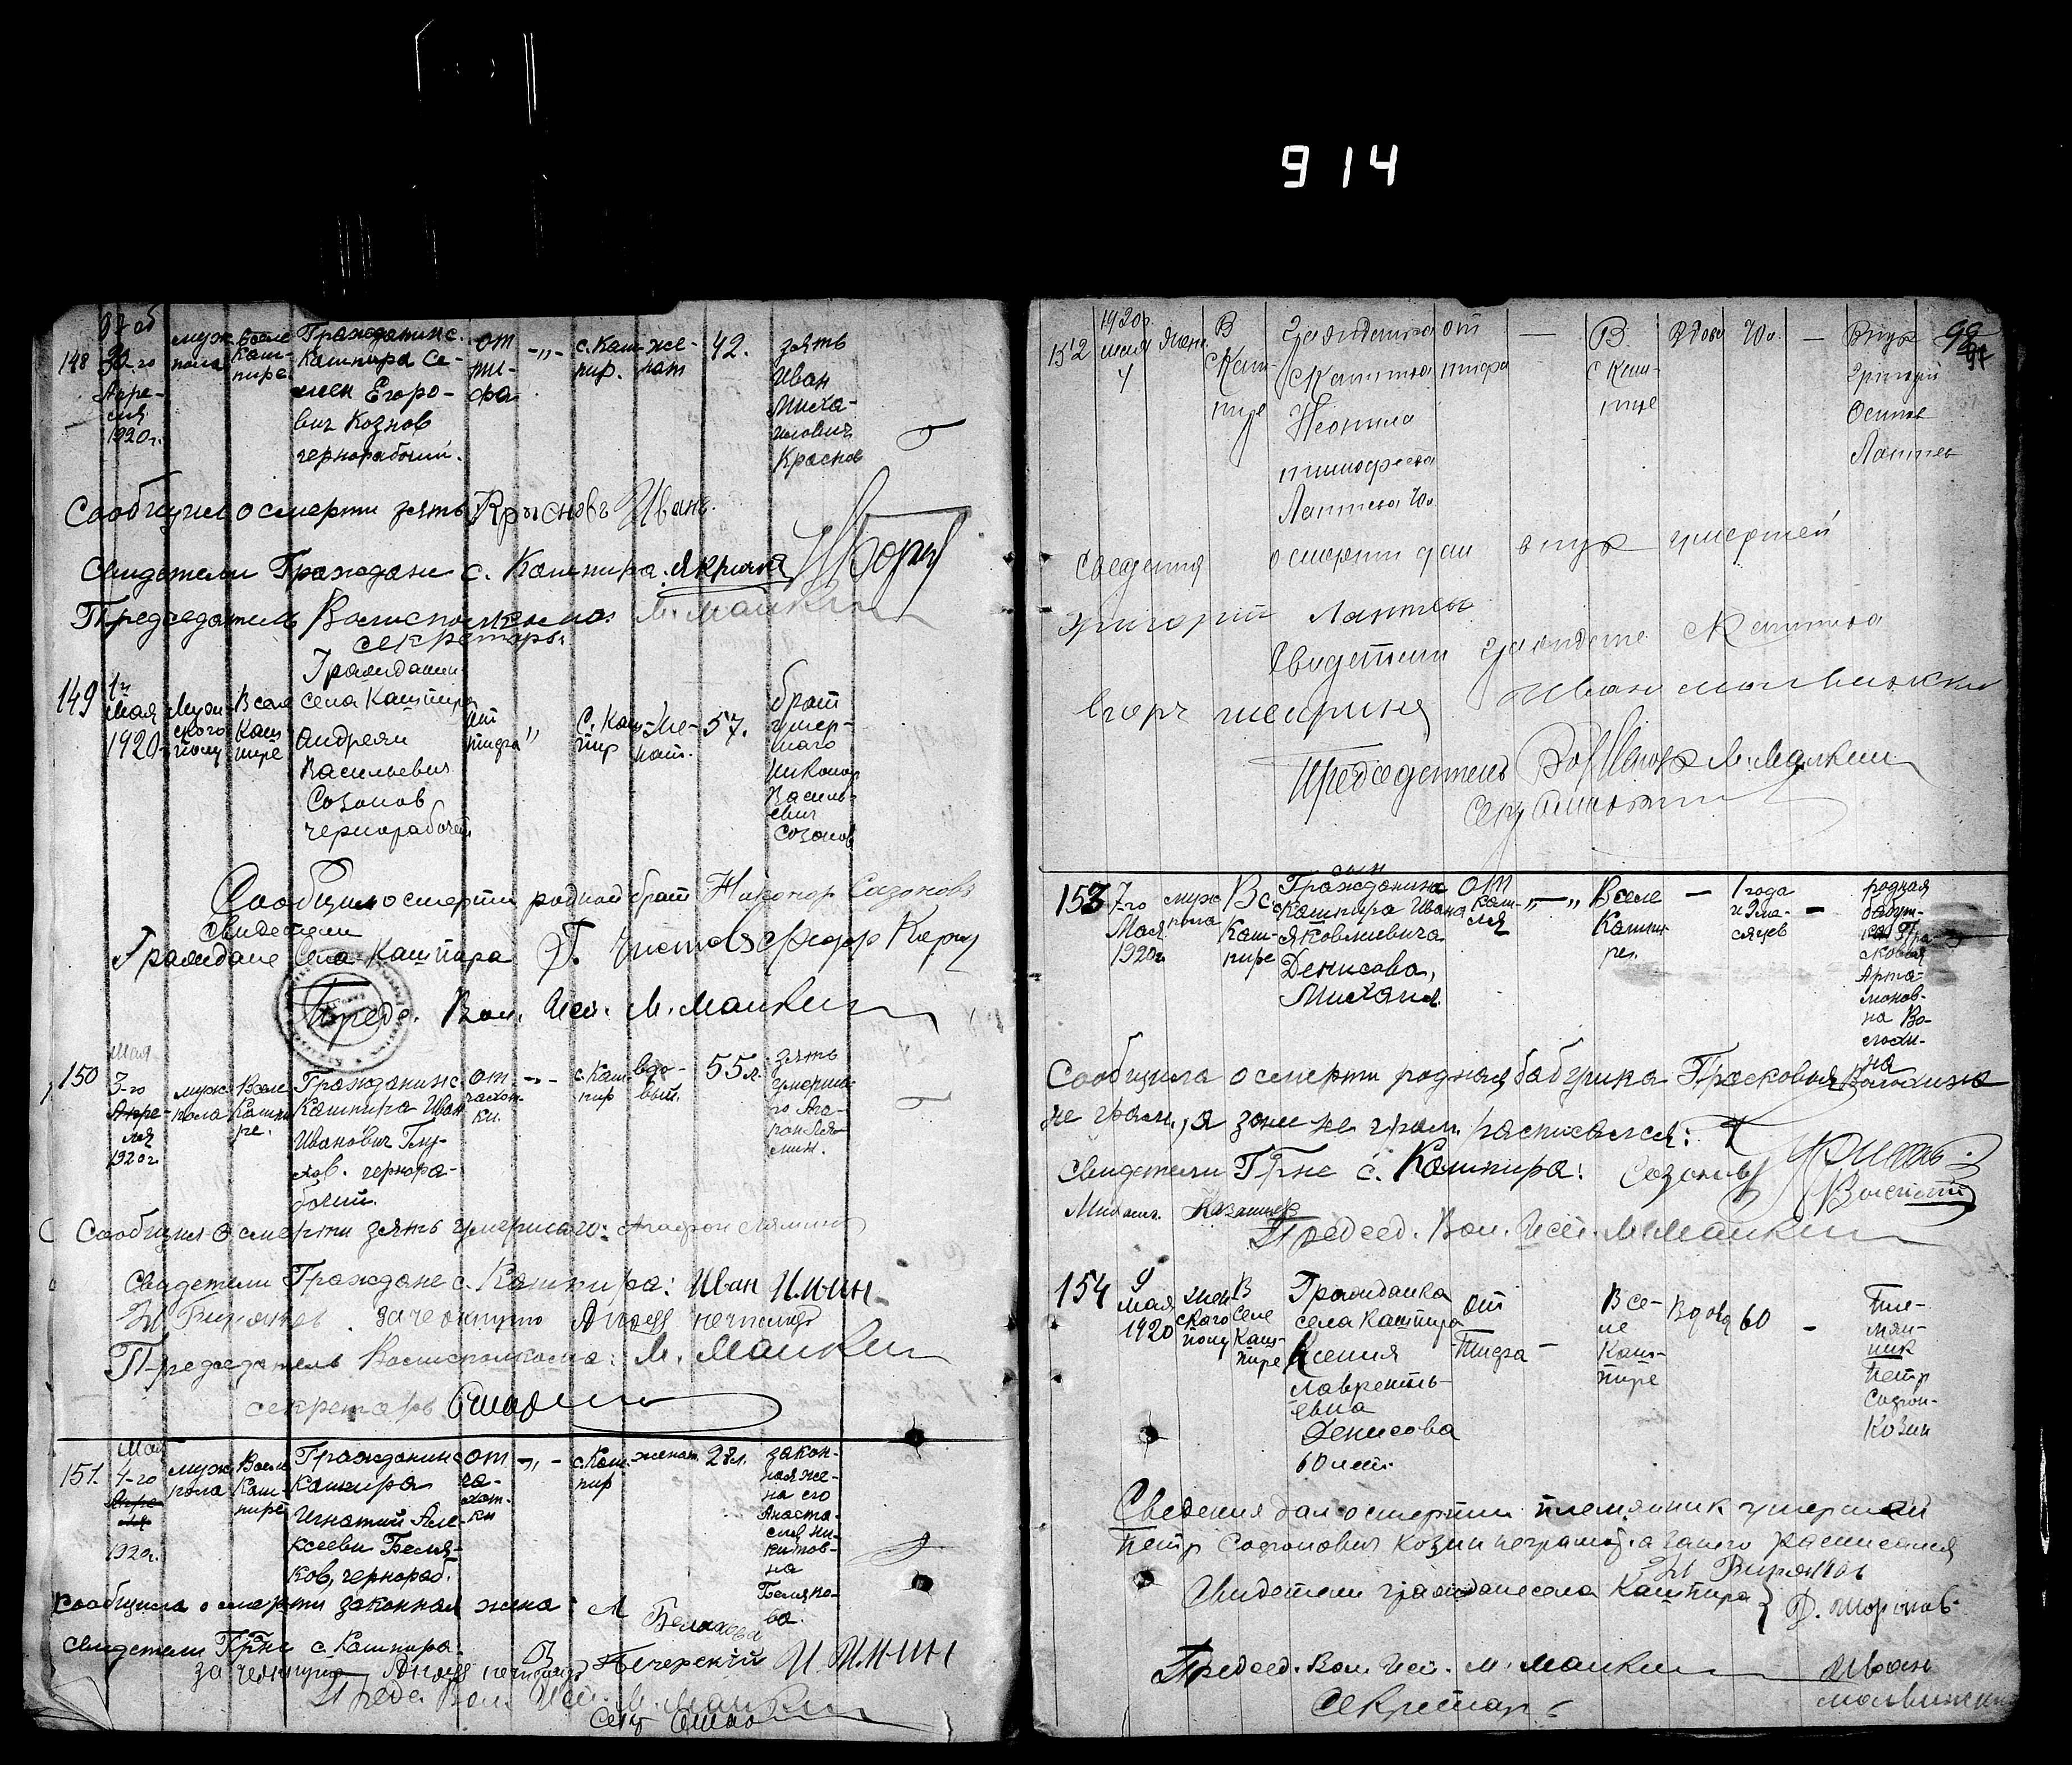 914
148
30-го Апре-
ля
1920 г.
муж.
пола
Вселе
Каш-
пире
Гражданин с.
Кашпира Се-
мен Егоро-
вич Кознов
чернорабочий.
от
ти-
фа
-„-
с. Каш-
пир.
же-
нат
42.
зять
Иван
Миха-
илович
Краснов
Сообщил о смерти зять Красновъ Иванъ.
Свидетели Граждане с. Кашпира:
Председатель Волисполкома: М. Малкин
секретарь
149
1го
Мая
1920
Муж-
ского
полу
В селе
Каш
пире
Гражданин
села Кашпира
Андреян
Васильевич
Созонов
чернорабочей
от
тифа
„
С. Каш-
пир
Же-
нат.
57.
брат
умер-
шаго
Никонор
Василь-
евич
Созонов
Сообщил о смерти родной брат Никонор Созоновъ
Свидетели
Граждане Села Кашпира
Предс. Вол. Исп. М. Малкин
150
Мая
3-го
Апре-
ля
1920 г.
муж.
пола
Вселе
Кашпи
ре.
Гражданин с.
Кашпира Иван
Иванович Глу-
хов. чернора-
бочий.
от
чахот-
ки.
-„-
с. Каш
пир
вдо-
вый.
55 л.
зять
умерша-
го Ага-
фон Ля-
мин.
Сообщил о смерти зять умершаго: Агафон Лямин
Свидетели Граждане с. Кашпира: Иван Илин
зачеркнуто Апреля нечитать
Председатель Волисполкома: М. Малкин
секретарь
151.
Мая
4-го
Апре-
ля
1920 г.
муж.
пола
Вселе
Каш-
пире
Гражданин с
Кашпира
Игнатий Але-
ксеевич Беля-
ков, чернораб.
от
ча-
хот-
ки
-„-
с. Каш-
пир
женат.
28 л.
закон-
ная же-
на его
Анаста-
сия Ни-
китов-
на
Беляко-
ва.
Сообщила о смерти законная жена:
Белякова
Свидетели Гр-не с. Кашпира:
Печерский И. Илин
зачеркнуто Апреля нечитать
Предс. Вол. Исп. М. Малкин
Секр
98
152
1920 г.
мая
4
В
с Каш-
пире
Гражданка
с Кашпира
Неонила
Тимофеева
Лаптева 70
от
тифа
—
В.
с Каш-
пире
Вдова
70
—
Внук
Григорий
Осипов
Лаптев
Сведения о смерти дал внук умершей
Григорий Лаптев
Свидетели граждане с Кашпира
Председатель М. Малкин
153
7-го
Мая
1920 г.
муж
пола
Вс
Каш-
пире
сын
Гражданина
Кашпира Ивана
Яковлевича
Денисова,
Михаил.
от
каш-
ля
„—„
Вселе
Кашпи
ре.
—
1 года
и 9 ме-
сяцев
—
родная
бабуш-
ка Пра-
сковья
Арта-
монов-
на Во-
лоши-
на
Сообщила о смерти родная бабушка Прасковья Волошина
не грам., а за нее не грам. расписался:
Свидетели Гр-не с. Кашпира: Созонов
Председ. Вол. Исп. М. Малкин
154
9
мая
1920
Жен
ского
полу
В
селе
Каш-
пире
Гражданка
села Кашпира
Ксения
Лавренть-
евна
Денисова
60 лет.
от
Тифа
—
В се-
ле
Каш-
пире
Вдова
60
—
Пле-
мян-
ник
Петр
Софон-
Козин
Сведения дал о смерти племянник умершей
Петр Софонович Козин неграмот. а за него расписался
Свидетели граждане села Кашпира
Председ. Вол. Исп. М. Малкин
Секретарь
Иван